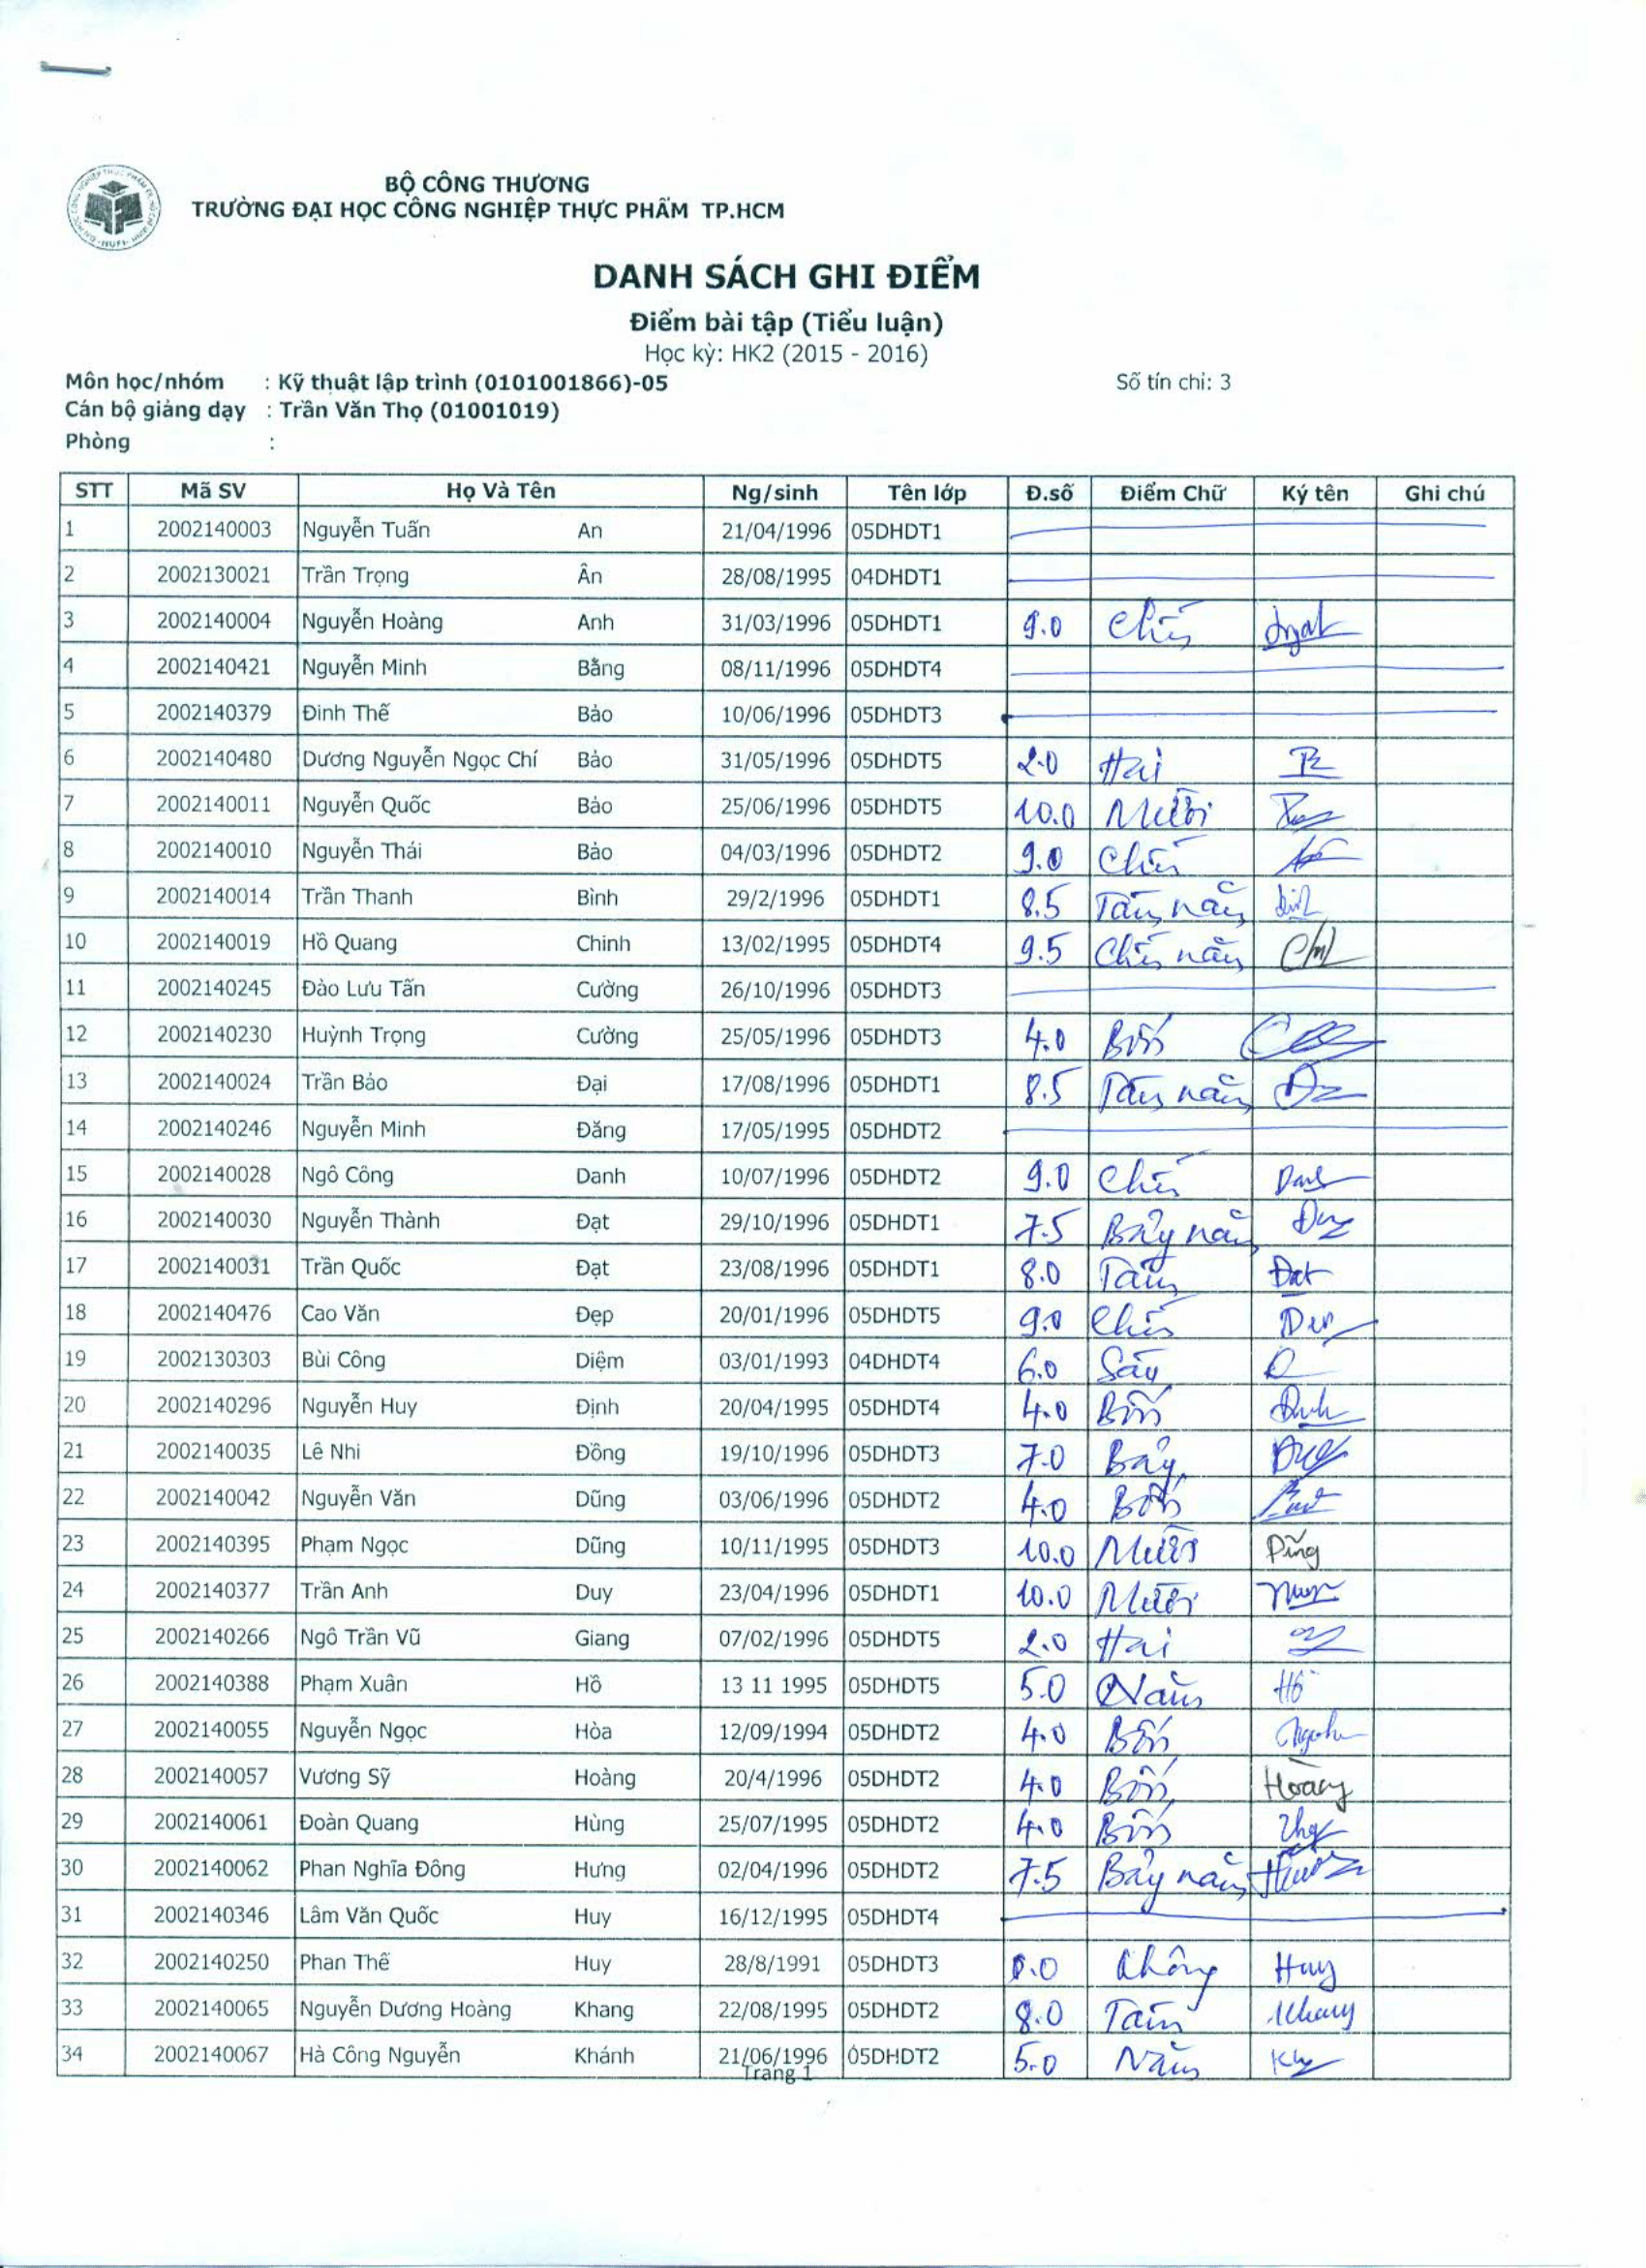 BỘ CÔNG THƯƠNG
TRƯỜNG ĐẠI HỌC CÔNG NGHIỆP THỰC PHẨM TP.HCM
DANH SÁCH GHI ĐIỂM
Điểm bài tập (Tiểu luận)
Học kỳ: HK2 (2015 - 2016)
Môn học/nhóm : Kỹ thuật lập trình (0101001866)-05 Số tín chỉ: 3
Cán bộ giảng dạy : Trần Văn Thọ (01001019)
Phòng :
STT Mã SV Họ Và Tên Ng/sinh Tên lớp Đ.số Điểm Chữ Ký tên Ghi chú
1 2002140003 Nguyễn Tuấn An 21/04/1996 05DHDT1
2 2002130021 Trần Trọng Ân 28/08/1995 04DHDT1
3 2002140004 Nguyễn Hoàng Anh 31/03/1996 05DHDT1 9.0 Chín
4 2002140421 Nguyễn Minh Bằng 08/11/1996 05DHDT4
5 2002140379 Đinh Thế Bảo 10/06/1996 05DHDT3
6 2002140480 Dương Nguyễn Ngọc Chí Bảo 31/05/1996 05DHDT5 2.0 Hai
7 2002140011 Nguyễn Quốc Bảo 25/06/1996 05DHDT5 10.0 Mười
8 2002140010 Nguyễn Thái Bảo 04/03/1996 05DHDT2 9.0 Chín
9 2002140014 Trần Thanh Bình 29/2/1996 05DHDT1 8.5 Tám năm
10 2002140019 Hồ Quang Chinh 13/02/1995 05DHDT4 9.5 Chín năm
11 2002140245 Đào Lưu Tấn Cường 26/10/1996 05DHDT3
12 2002140230 Huỳnh Trọng Cường 25/05/1996 05DHDT3 4.0 Bốn
13 2002140024 Trần Bảo Đại 17/08/1996 05DHDT1 8.5 Tám năm
14 2002140246 Nguyễn Minh Đăng 17/05/1995 05DHDT2
15 2002140028 Ngô Công Danh 10/07/1996 05DHDT2 9.0 Chín Danh
16 2002140030 Nguyễn Thành Đạt 29/10/1996 05DHDT1 7.5 Bảy năm
17 2002140031 Trần Quốc Đạt 23/08/1996 05DHDT1 8.0 Tám Đạt
18 2002140476 Cao Văn Đẹp 20/01/1996 05DHDT5 9.0 Chín
19 2002130303 Bùi Công Diệm 03/01/1993 04DHDT4 6.0 Sáu
20 2002140296 Nguyễn Huy Định 20/04/1995 05DHDT4 4.0 Bốn
21 2002140035 Lê Nhi Đồng 19/10/1996 05DHDT3 7.0 Bảy
22 2002140042 Nguyễn Văn Dũng 03/06/1996 05DHDT2 4.0 Bốn
23 2002140395 Phạm Ngọc Dũng 10/11/1995 05DHDT3 10.0 Mười Dũng
24 2002140377 Trần Anh Duy 23/04/1996 05DHDT1 10.0 Mười
25 2002140266 Ngô Trần Vũ Giang 07/02/1996 05DHDT5 2.0 Hai
26 2002140388 Phạm Xuân Hồ 13 11 1995 05DHDT5 5.0 Năm Hồ
27 2002140055 Nguyễn Ngọc Hòa 12/09/1994 05DHDT2 4.0 Bốn
28 2002140057 Vương Sỹ Hoàng 20/4/1996 05DHDT2 4.0 Bốn Hoàng
29 2002140061 Đoàn Quang Hùng 25/07/1995 05DHDT2 4.0 Bốn
30 2002140062 Phan Nghĩa Đông Hưng 02/04/1996 05DHDT2 7.5 Bảy năm
31 2002140346 Lâm Văn Quốc Huy 16/12/1995 05DHDT4
32 2002140250 Phan Thế Huy 28/8/1991 05DHDT3 0.0 Không Huy
33 2002140065 Nguyễn Dương Hoàng Khang 22/08/1995 05DHDT2 8.0 Tám Khang
34 2002140067 Hà Công Nguyễn Khánh 21/06/1996 05DHDT2 5.0 Năm
Trang 1